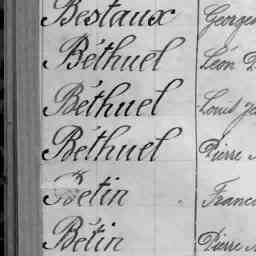 Bestaux Georges
Béthuel Léon
Béthuel Louis
Béthuel Pierre
Betin
Bétin Pierre